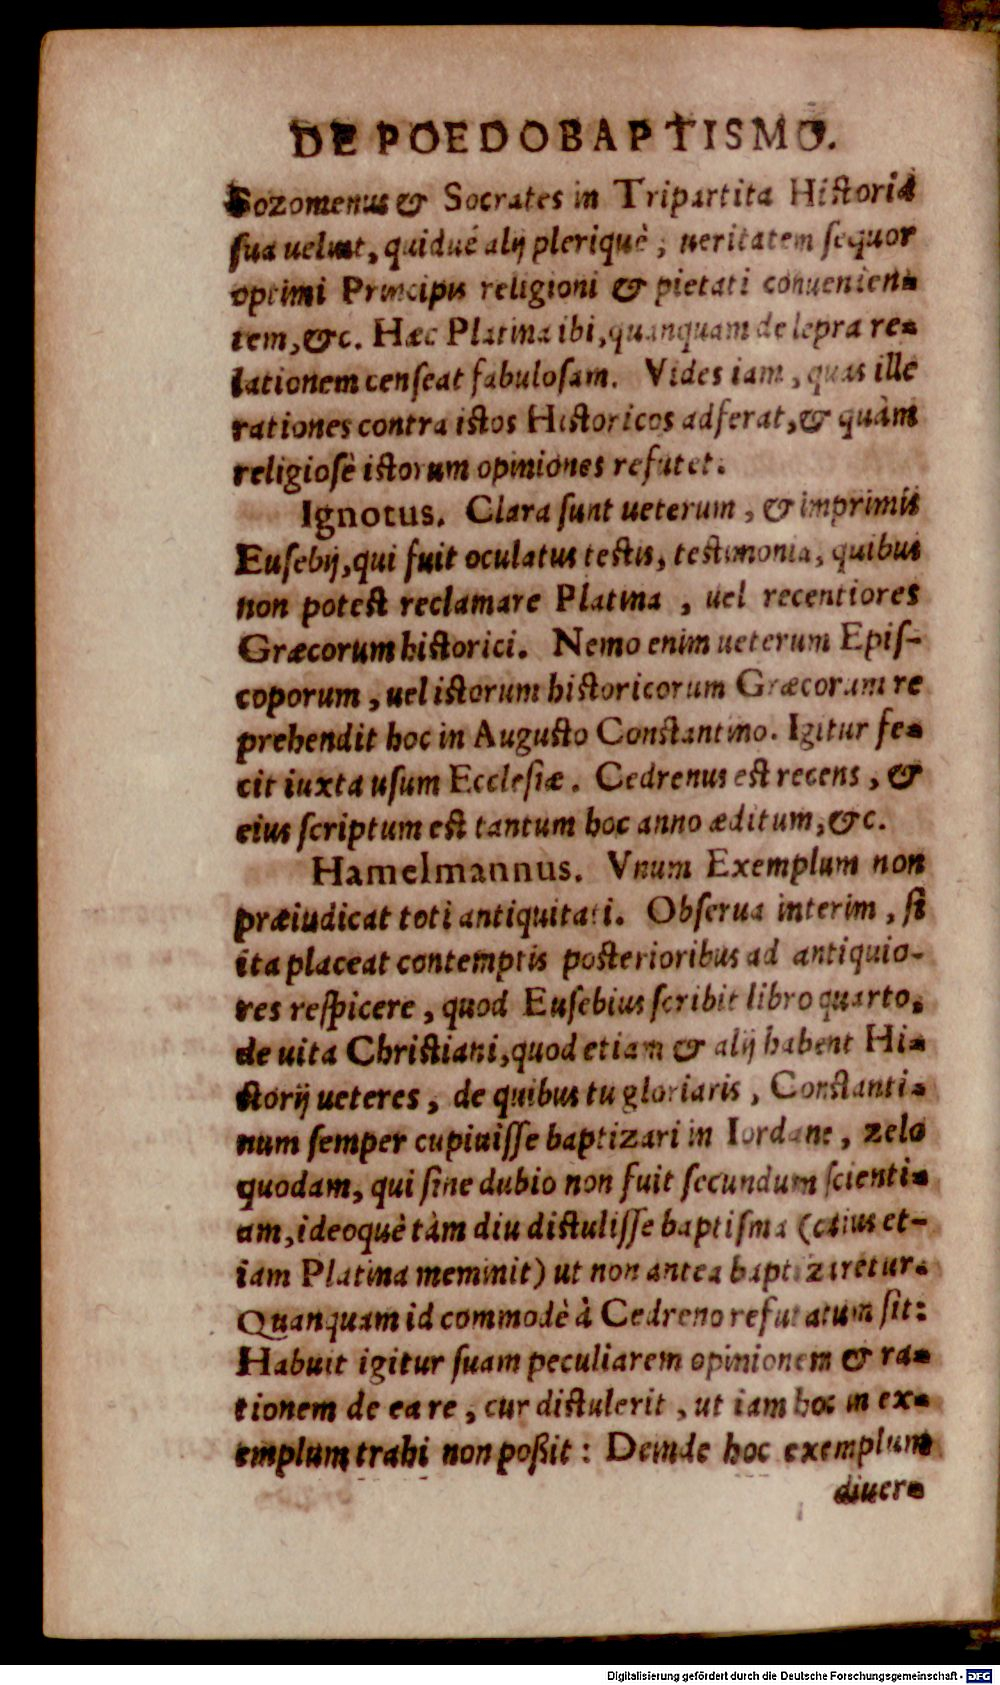 DE POEDOBAPTISMO.
Sozomenus & Socrates in Tripartita Historia
sua uelint, quidué alij pleriquè, ueritatem sequor
optimi Principis religioni & pietati conuenien-
tem, &c. Hæc Platina ibi, quanquam de lepra re-
lationem censeat fabulosam. Vides iam, quas ille
rationes contra istos Historicos adferat, & quàm
religiosè istorum opiniones refutet.
Ignotus. Clara sunt ueterum, & imprimis
Eusebij, qui fuit oculatus testis, testimonia, quibus
non potest reclamare Platina, uel recentiores
Græcorum historici. Nemo enim ueterum Epis-
coporum, uel istorum historicorum Græcorum re
prehendit hoc in Augusto Constantino. Igitur fe-
cit iuxta usum Ecclesiæ. Cedrenus est recens, &
eius scriptum est tantum hoc anno æditum, &c.
Hamelmannus. Vnum Exemplum non
præiudicat toti antiquitati. Obserua interim, si
ita placeat contemptis posterioribus ad antiquio-
res respicere, quod Eusebius scribit libro quarto,
de uita Christiani, quod etiam & alij habent Hi-
storij ueteres, de quibus tu gloriaris, Constanti-
num semper cupiuisse baptizari in Iordane, zelo
quodam, qui sine dubio non fuit secundum scienti-
am, ideoquè tàm diu distulisse baptisma (cuius et-
iam Platina meminit) ut non antea baptizaretur.
Quanquam id commodè à Cedreno refutatum sit:
Habuit igitur suam peculiarem opinionem & ra-
tionem de ea re, cur distulerit, ut iam hoc in ex-
emplum trahi non poßit: Deinde hoc exemplum
diuer-
Digitalisierung gefördert durch die Deutsche Forschungsgemeinschaft - DFG